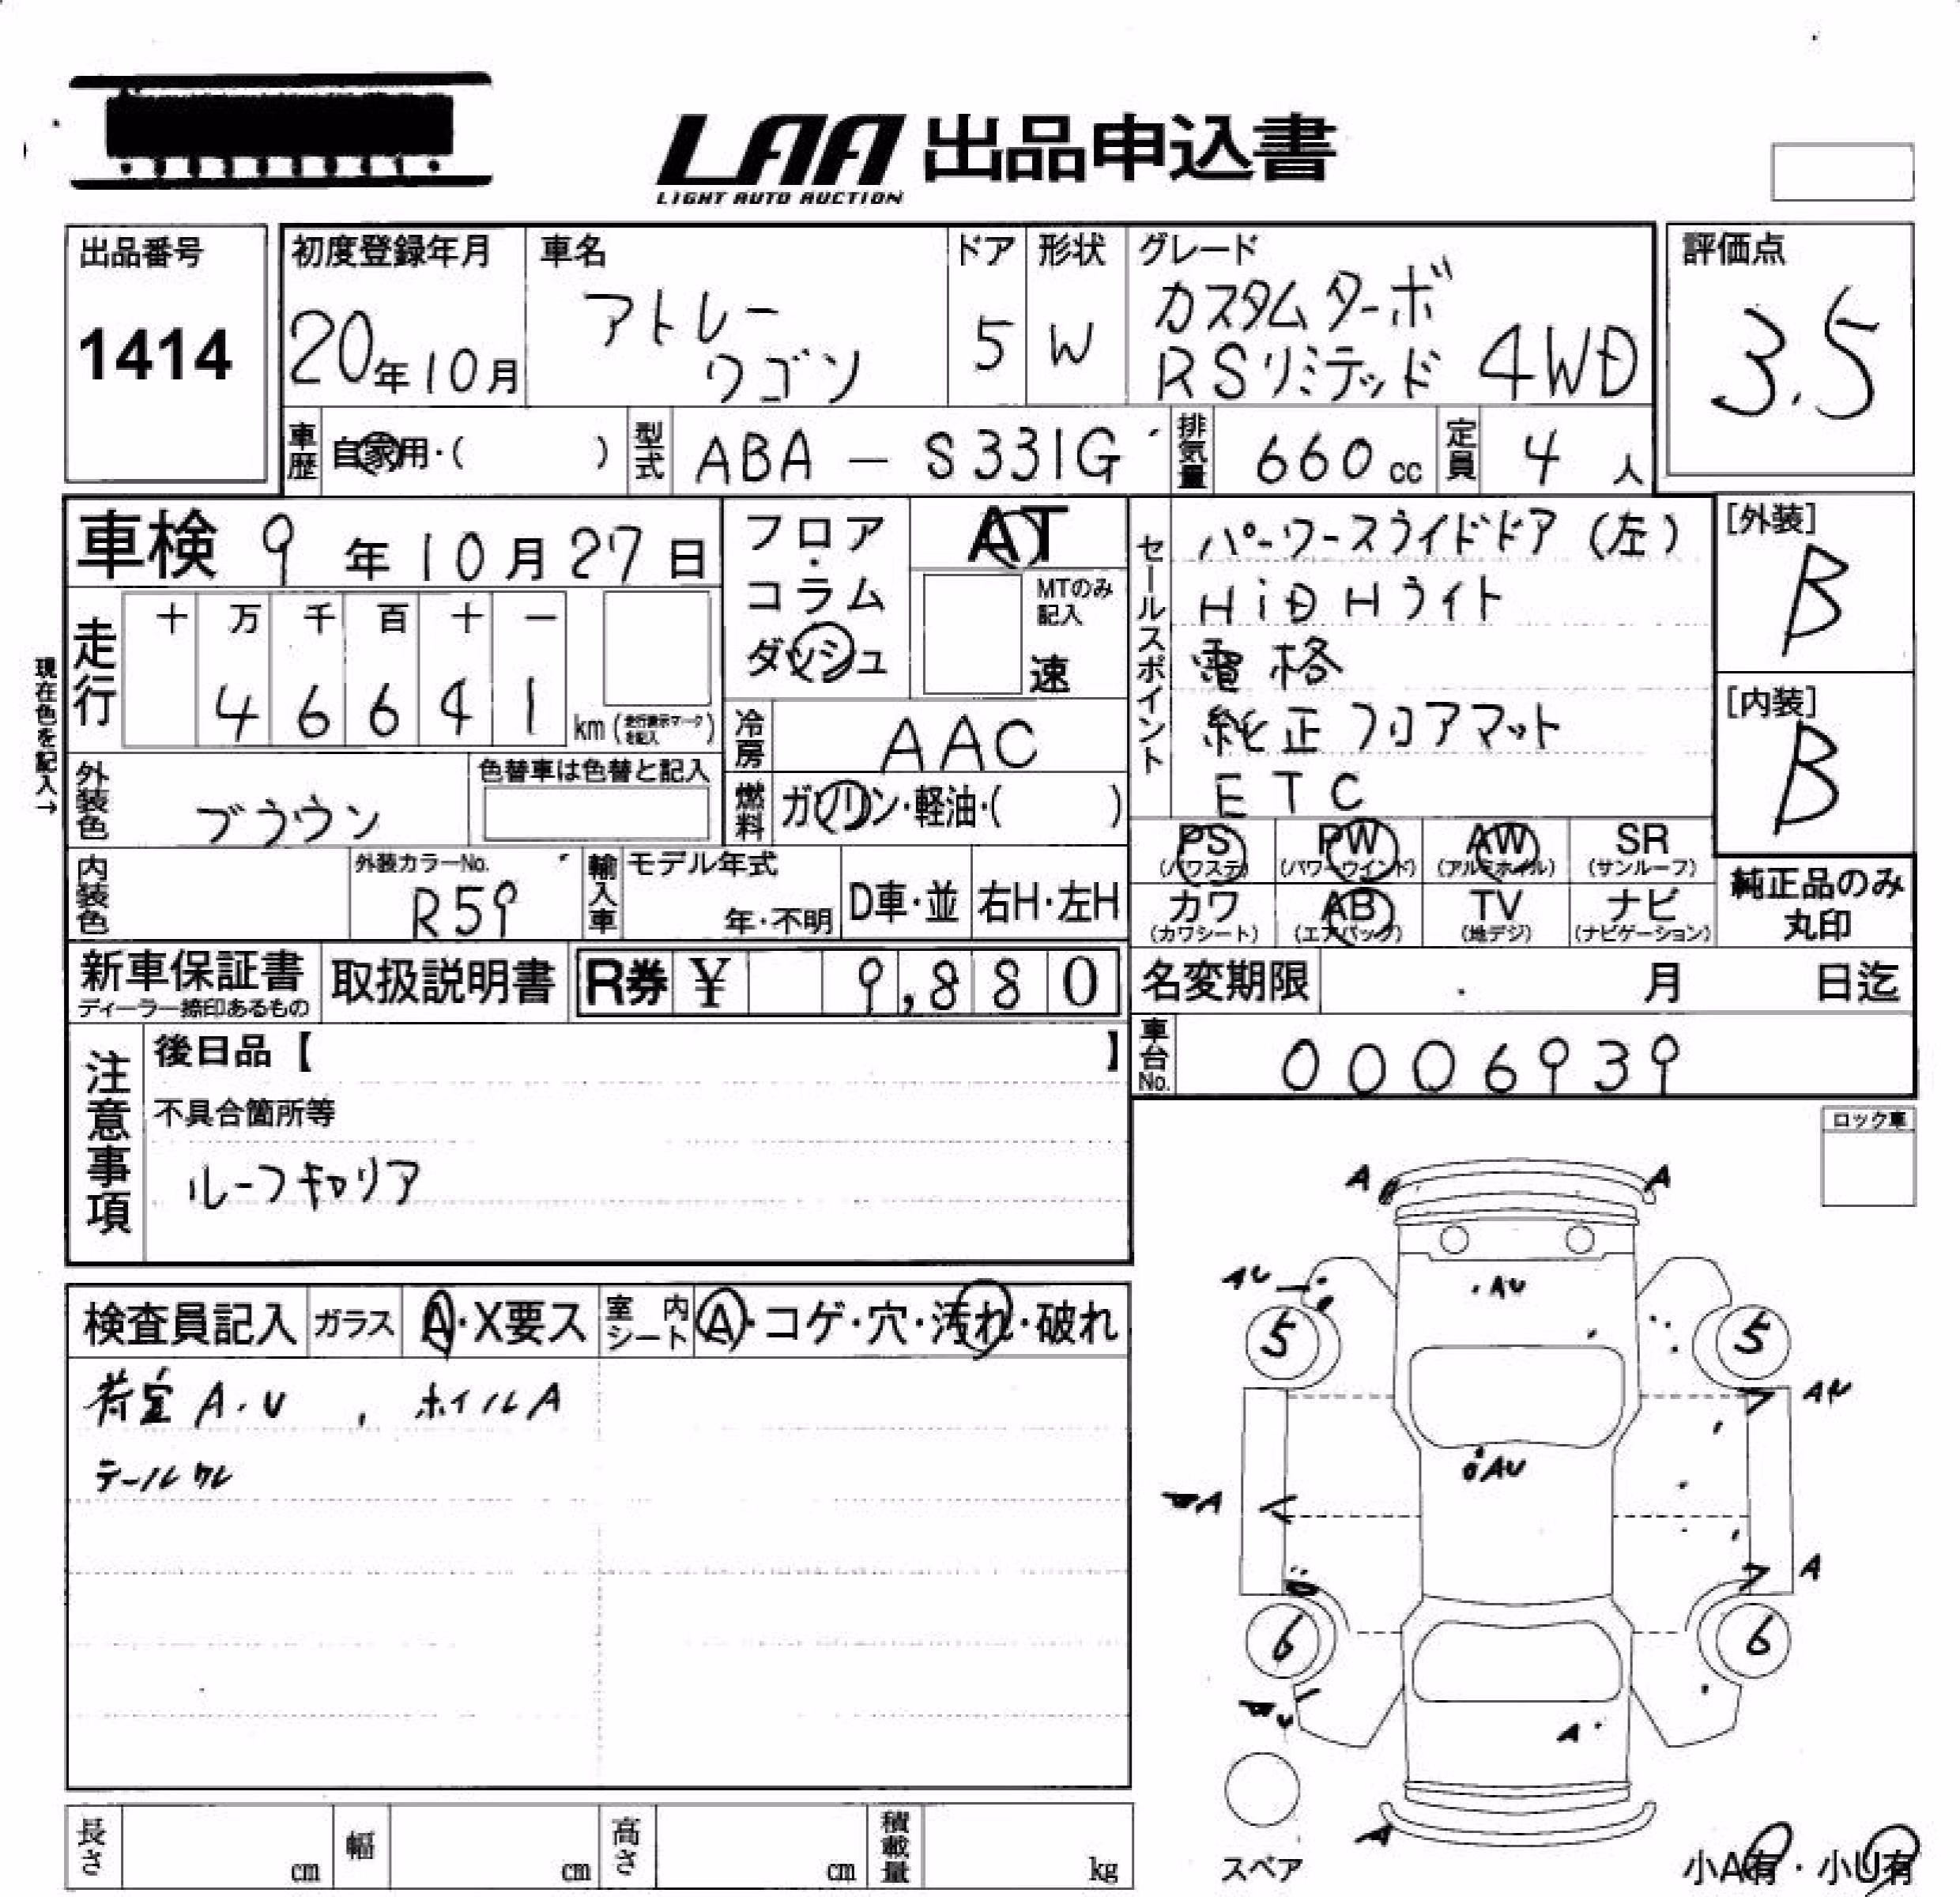 LAA 出品申込書
LIGHT AUTO AUCTION
出品番号
1414
初度登録年月
20年10月
車名
アトレー
ワゴン
ドア
5
形状
W
グレード
カスタムターボ
RSリミテッド 4WD
評価点
3.5
車歴
自家用・( )
型式
ABA - S331G
排気量
660 cc
定員
4 人
車検 9年10月27日
フロア・コラム
ダッシュ
AT
MTのみ記入
速
セールスポイント
パワースライドドア (左)
HiD Hライト
電格
純正フロアマット
ETC
[外装]
B
[内装]
B
現在色を記入→
走行
十 万 千 百 十 一
4 6 6 4 1 km (走行表示マークを記入)
冷房
AAC
外装色
ブラウン
色替車は色替と記入
燃料
ガソリン・軽油・( )
内装色
外装カラーNo.
R59
輸入車
モデル年式
年・不明
D車・並
右H・左H
PS (パワステ)
PW (パワーウインド)
AW (アルミホイル)
SR (サンルーフ)
カワ (カワシート)
AB (エアバッグ)
TV (地デジ)
ナビ (ナビゲーション)
純正品のみ
丸印
新車保証書
ディーラー捺印あるもの
取扱説明書
R券 ¥ 9,880
名変期限 月 日迄
車台No.
0006939
注意事項
後日品【 】
不具合箇所等
ルーフキャリア
ロック車
検査員記入
ガラス
A・X要ス
室内シート
A・コゲ・穴・汚れ・破れ
荷室 A.U , ホイルA
テールワレ
A
A
AU
AU
5
5
AU
AU
A
A
6
6
U
A
A
スペア
小A有・小U有
長さ cm
幅 cm
高さ cm
積載量 kg